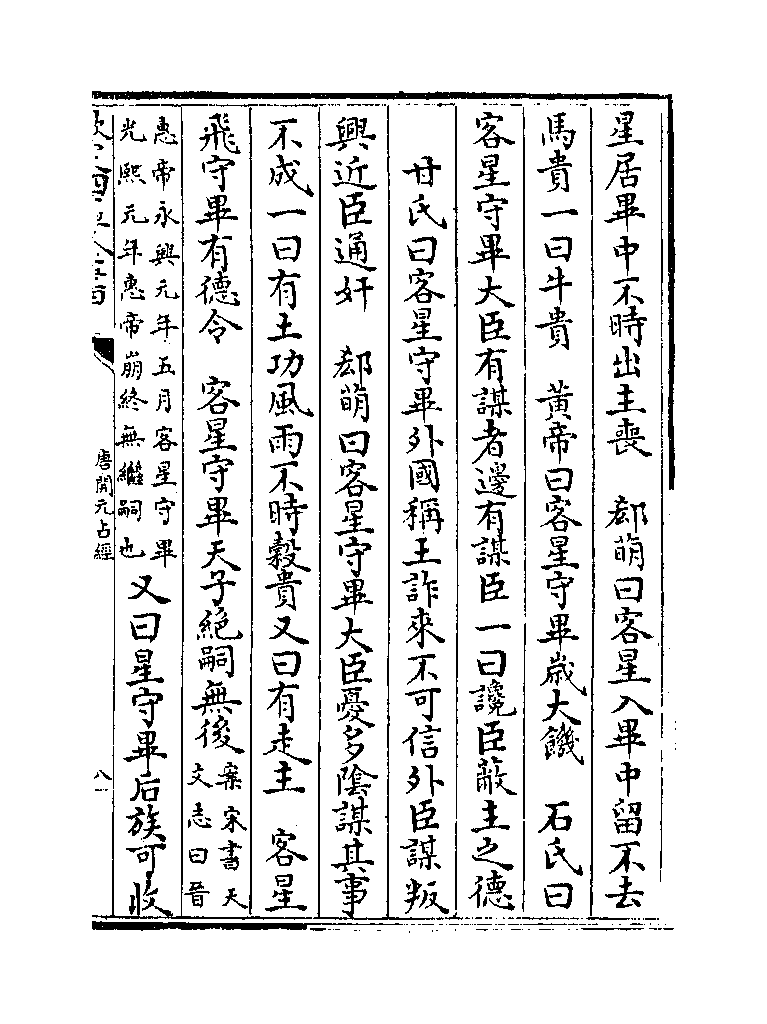 星居畢中不時出主喪　郄萌曰客星入畢中留不去
馬貴一曰牛貴　黃帝曰客星守畢嵗大饑　石氏曰
客星守畢大臣有謀者邊有謀臣一曰讒臣蔽主之德
甘氏曰客星守畢外國稱王詐來不可信外臣謀叛
興近臣通奸　郄萌曰客星守畢大臣憂多隂謀其事
不成一曰有土功風雨不時榖貴又曰有走主　客星
飛守畢有德令　客星守畢天子絶嗣無後案宋書天
文志曰晉
惠帝永興元年五月客星守畢
光熙元年惠帝崩終無繼嗣也
又曰星守畢后族可收
唐開元占經